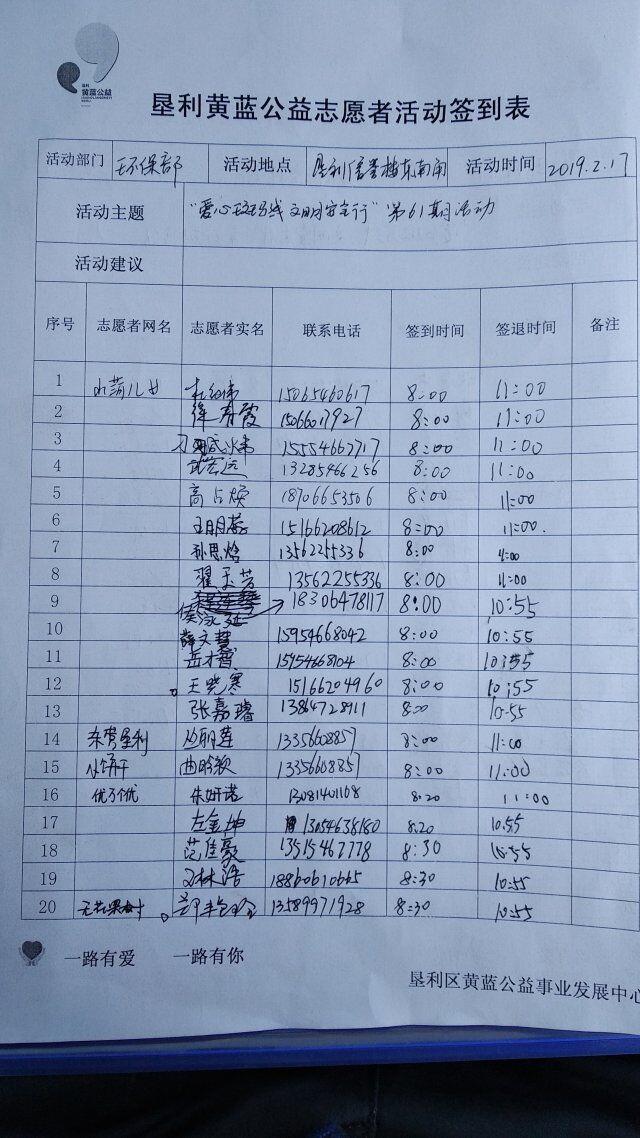 垦利
黄蓝公益
垦利黄蓝公益志愿者活动签到表
活动部门 环保部 活动地点 垦利 东南角 活动时间 2019.2.17
活动主题 "爱心斑马线文明安全行"第61期活动
活动建议
序号 志愿者网名 志愿者实名 联系电话 签到时间 签退时间 备注
1 15065460617 8:00 11:00
2 徐有霞 15066017927 8:00 11:00
3 15554667717 8:00 11:00
4 武宏远 13285466256 8:00 11:00
5 高占焕 18706653506 8:00 11:00
6 王明蕊 15166208612 8:00 11:00.
7 孙思晗 13562255336 8:00 11:00
8 翟玉芳 13562255336 8:00 11:00
9 18306478117 8:00 10:55
10 薛文慧 15954668042 8:00 10:55
11 岳才智 15954668104 8:00 10:55
12 王晓寒 15166204960 8:00 10:55
13 张嘉睿 13864728911 8:00 10:55
14 东营垦利 丛丽莲 13356008857 8:00 11:00
15 小饼干 曲晗颖 13356608857 8:00 11:00
16 优了个优 朱妍诺 13081401168 8:20 11:00
17 左金坤 13054638180 8:20 10:55
18 范佳豪 13515467778 8:30 10:55
19 18860610665 8:30 10:55
20 无花果树 13589971928 8:30 10:55
一路有爱 一路有你
垦利区黄蓝公益事业发展中心